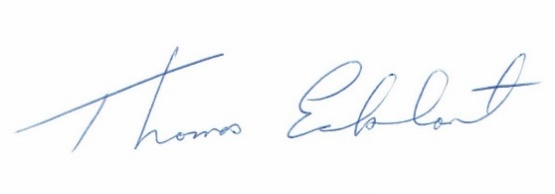 Thomas Eckhart